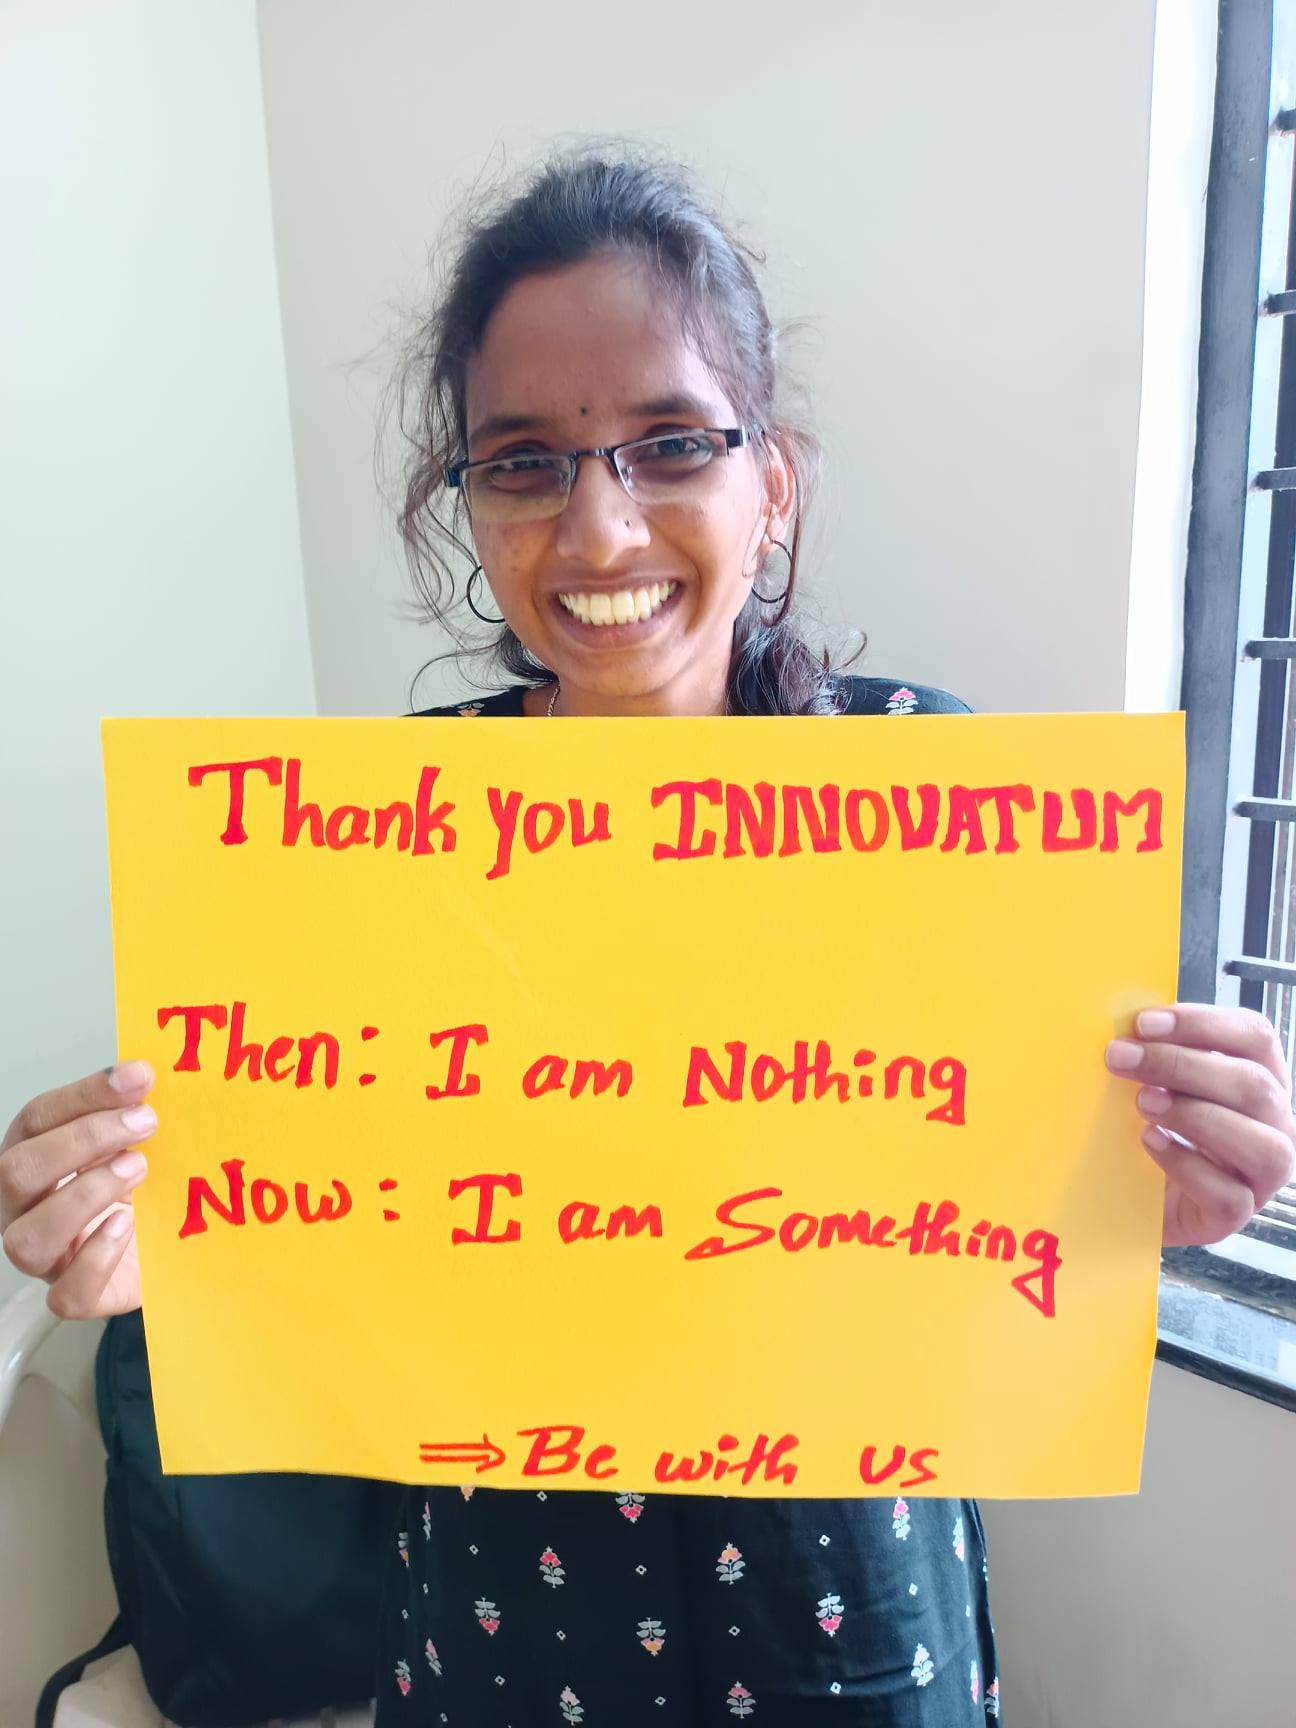 Thank you INNOVATUM
Then: I am Nothing
Now: I am Something
⇒ Be with us